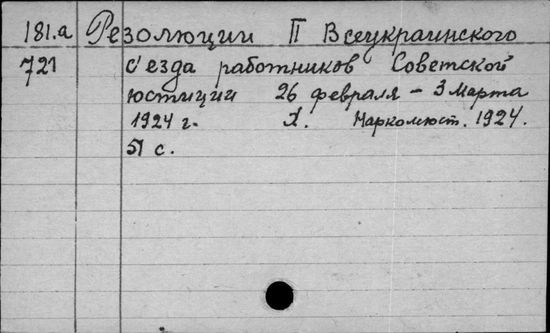 181.а Резолюции II Всеукраинского
721 с'езда работников Советской
юстиции 26 февраля – 3 марта
1924 г. Х. Наркомюст. 1924.
51 с.